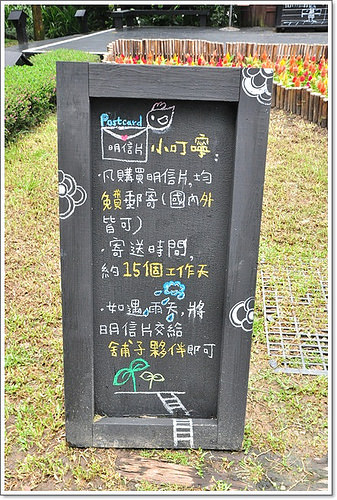 Postcard
明信片 小叮嚀
·凡購買明信片,均
免費郵寄(國內外
皆可)
·寄送時間,
約15個工作天
·如遇雨天,將
明信片交給
舖子夥伴即可